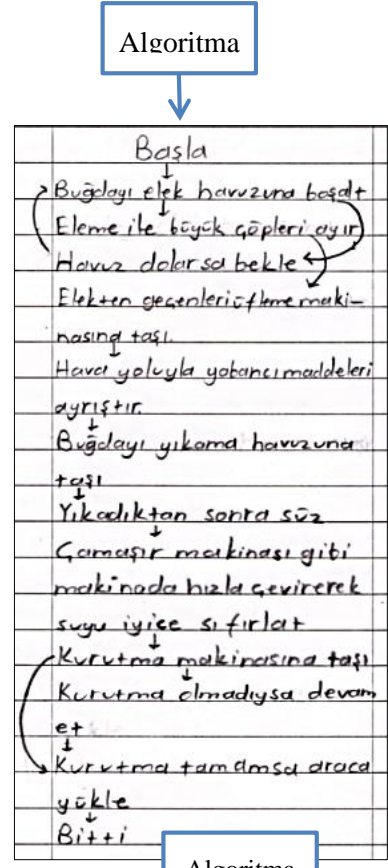 Algoritma
Başla
Buğdayı elek havuzuna boşalt
Eleme ile büyük çöpleri ayır
Havuz dolarsa bekle
Elekten geçenleri üfleme maki-
nasına taşı.
Hava yoluyla yabancı maddeleri
ayrıştır.
Buğdayı yıkama havuzuna
taşı
Yıkadıktan sonra süz
Çamaşır makinası gibi
makinada hızla çevirerek
suyu iyice sıfırlat
Kurutma makinasına taşı
Kurutma olmadıysa devam
et
Kurutma tamamsa araca
yükle
Bitti
Algoritma